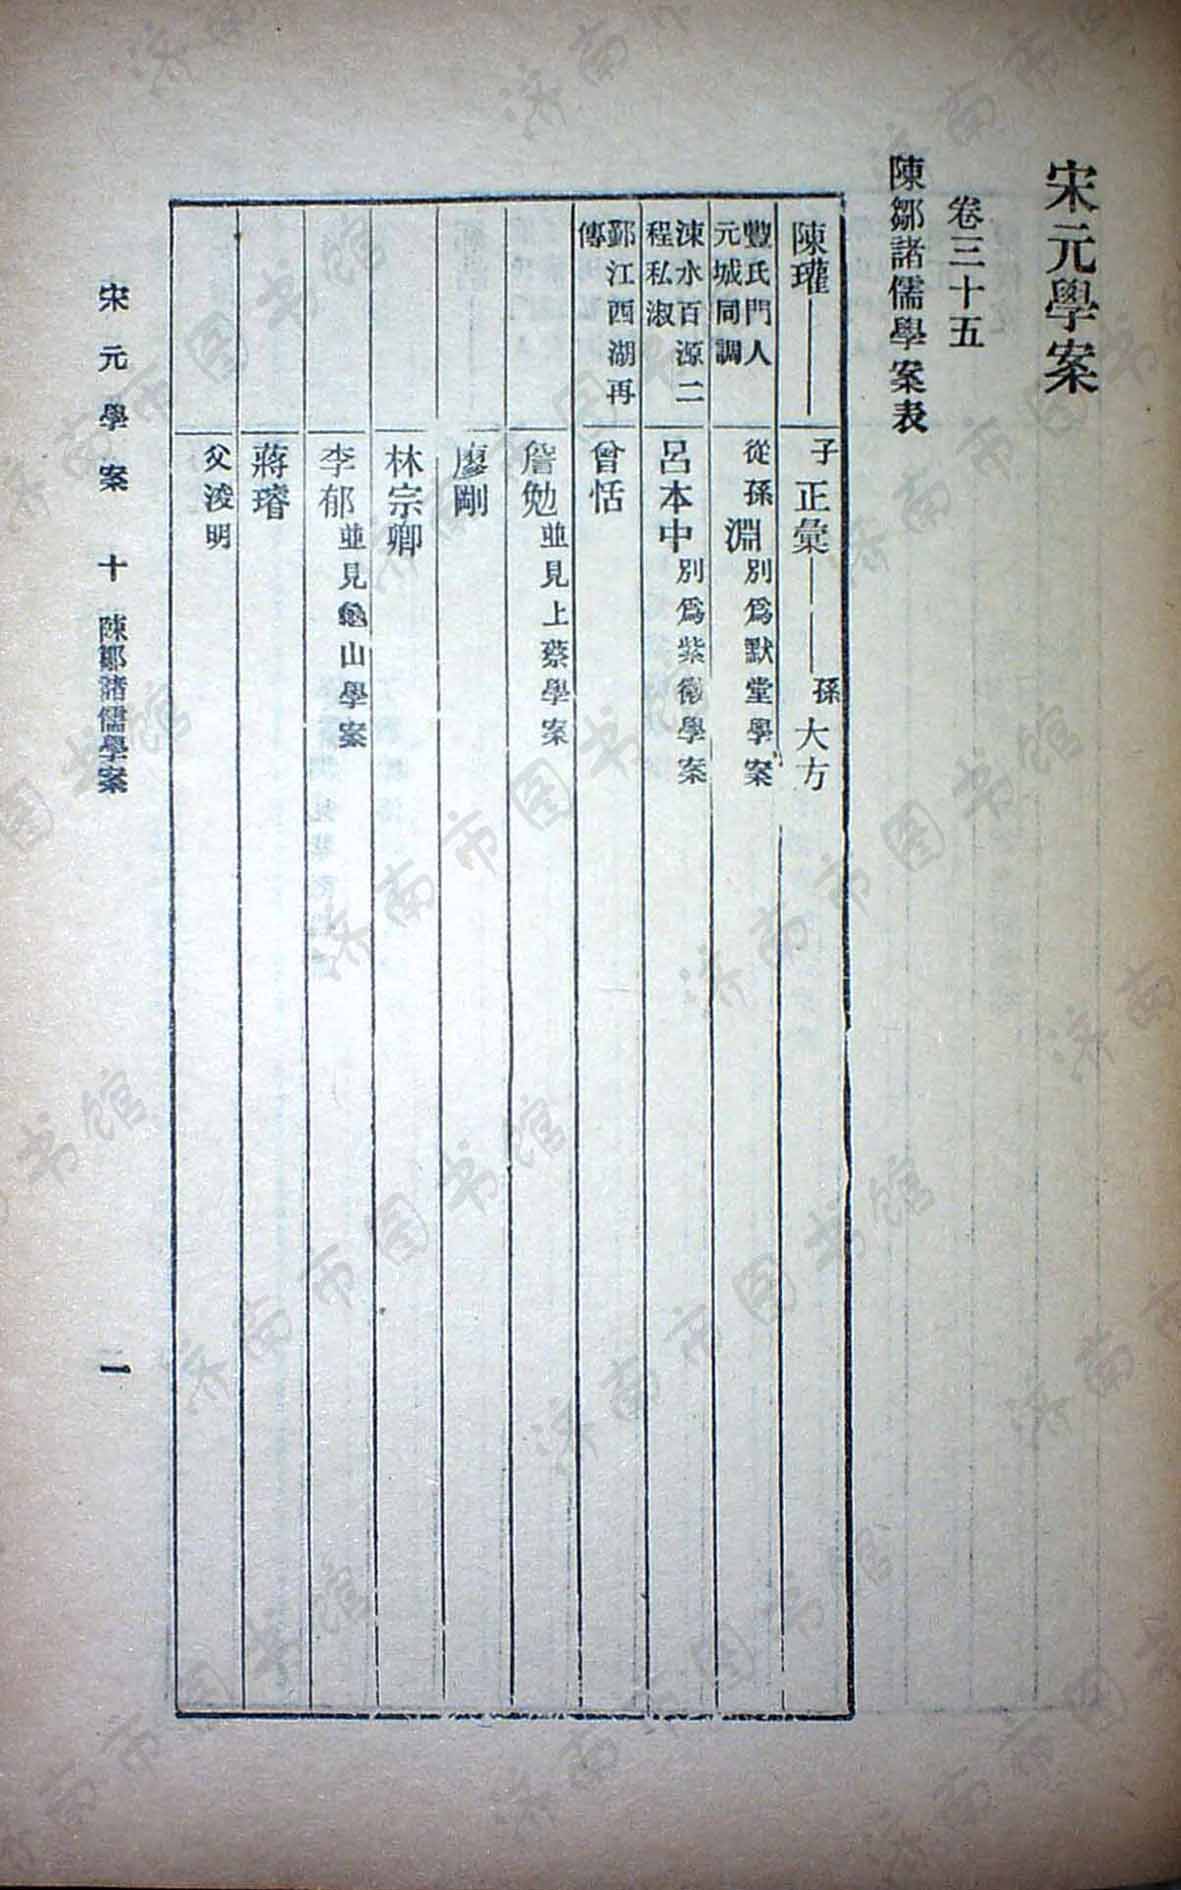 宋元學案
卷三十五
陳鄒諸儒學案表
陳瓘
子正彙
孫大方
豐氏門人
元城同調
從孫淵別爲默堂學案
涑水百源二
程私淑
呂本中別爲紫微學案
鄞江西湖再
傳
曾恬
詹勉並見上蔡學案
廖剛
林宗卿
李郁並見龜山學案
蔣璿
父浚明
宋元學案 十 陳鄒諸儒學案
一
济南市图书馆